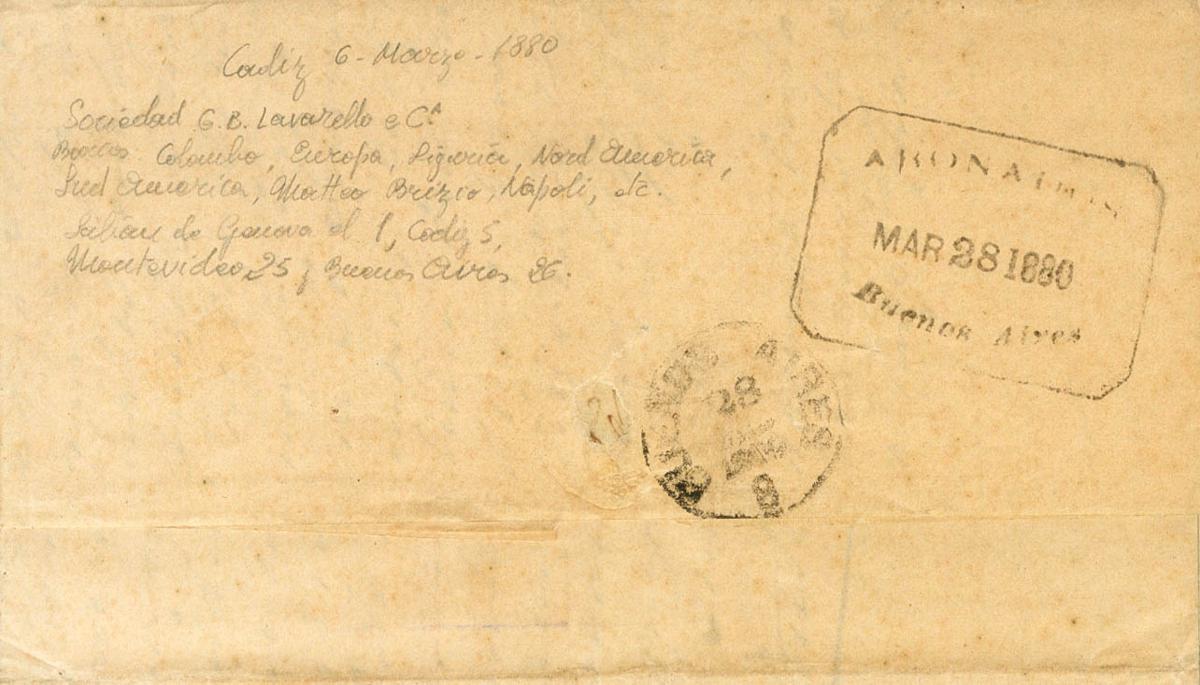 Cadiz 6 - Marzo - 1880
Sociedad G. B. Lavarello e Cª
Barcos Colombo, Europa, Liguria, Nord America,
Sud America, Matteo Brizio, Napoli, etc.
Salian de Genova el 1, Cadiz 5,
Montevideo 25 y Buenos Aires 26.
MAR 28 1880
Buenos Aires
BUENOS AIRES
28
8